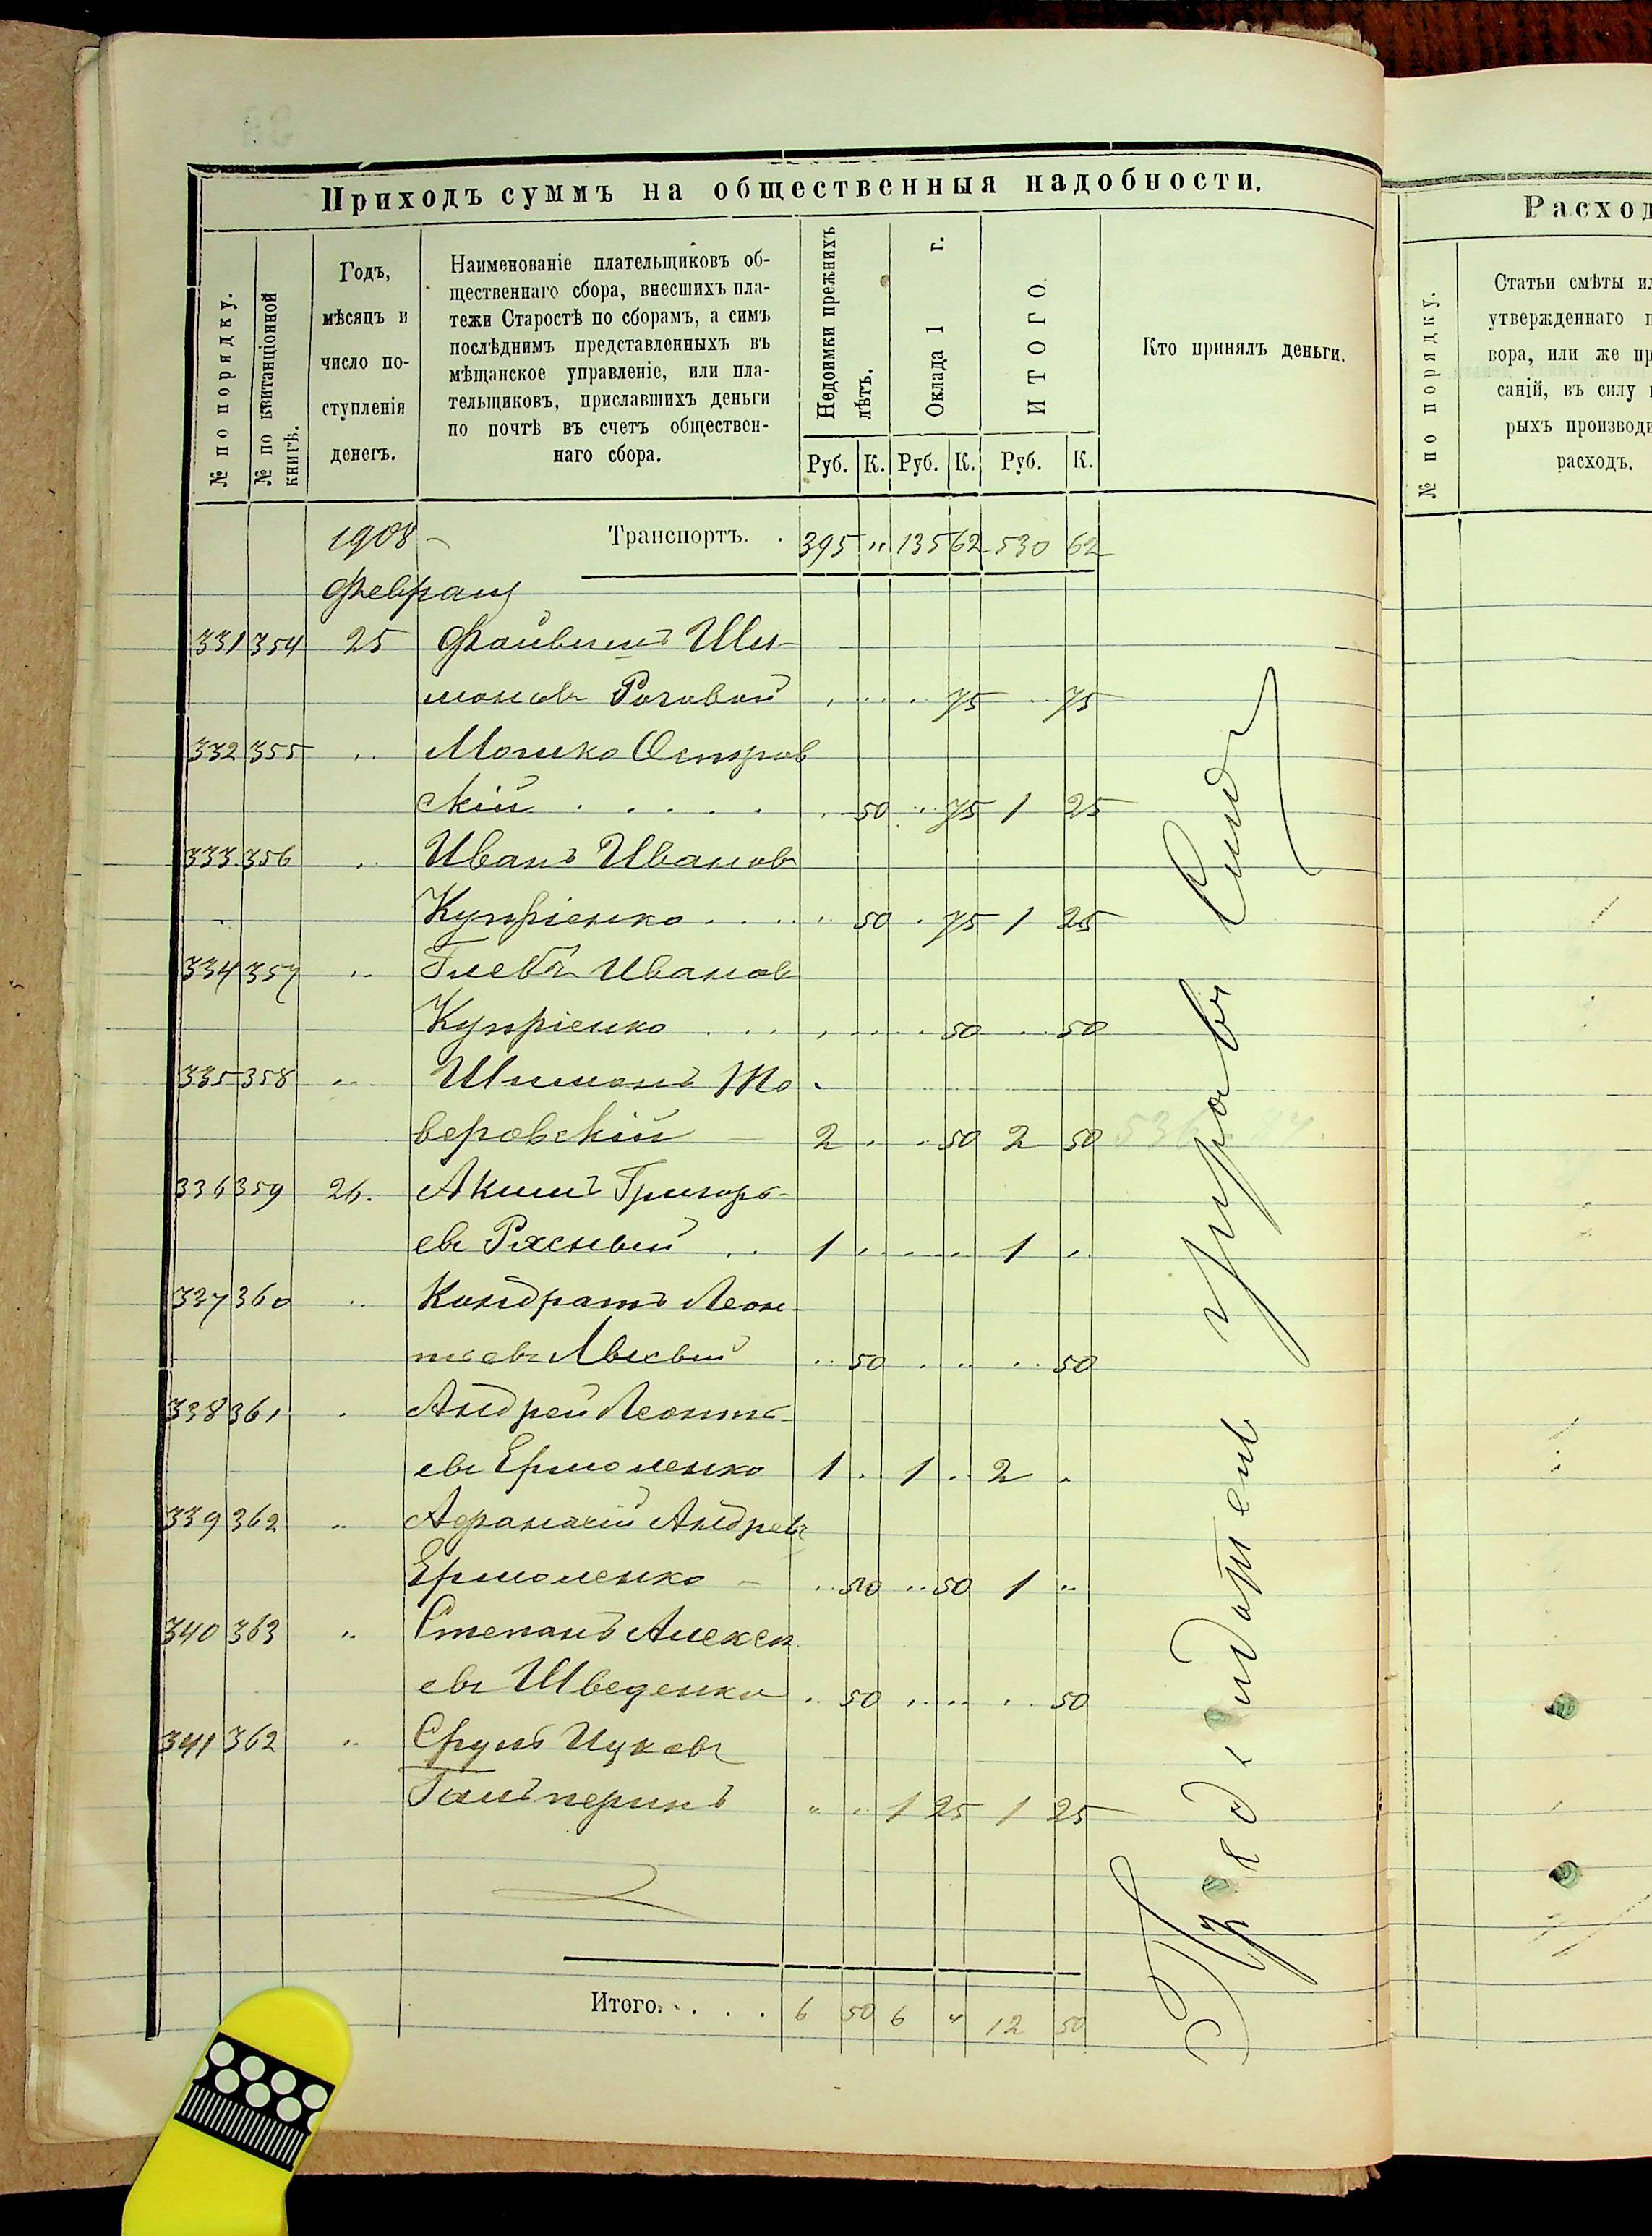 Приходъ суммъ на общественныя надобности.
№ по порядку.
№ по квитанціонной
книгѣ.
Годъ,
мѣсяцъ и
число по-
ступленія
денегъ.
Наименованіе плательщиковъ об-
щественнаго сбора, внесшихъ пла-
тежи Старостѣ по сборамъ, а симъ
послѣднимъ представленныхъ въ
мѣщанское управленіе, или пла-
тельщиковъ, приславшихъ деньги
по почтѣ въ счетъ обществен-
наго сбора.
Недоимки прежнихъ
лѣтъ.
Оклада 1 г.
ИТОГО.
Руб. К. Руб. К. Руб. К.
Кто принялъ деньги.
1908 Транспортъ. . 395 " 135 62 530 62
Февраля
331 354 25 Файвишъ Ши-
моновъ Роговой . . . . 75 . . 75
332 355 " Мошко Остров
скій . . . . . . 50 " 75 1 25
333 356 " Иванъ Ивановъ
Купріенко . . . . 50 . 75 1 25
334 357 " Глебъ Иванов
Купріенко . . . . . . 50 . . 50
335 358 " Шимонъ
веровскій 2 . . . 50 2 50
336 359 26. Акимъ Григорь-
евъ Рясный . . 1 . . . . 1 "
337 360 " Кондратъ Леон
тьевъ . . 50 . . . . . 50
338 361 " Андрей Леонть-
евъ Ермоленко 1 . 1 . 2 .
339 362 " Афанасій Андреевъ
Ермоленко . . 50 . . 50 1 "
340 363 " Степанъ Алексе
евъ Шведенко . . 50 . . . . . 50
341 362 " Сруль Ицковъ
Гальперинъ " " 1 25 1 25
Итого. . . . 6 50 6 " 12 50
управы
Расход
№ по порядку.
Статьи смѣты ил
утвержденнаго п
вора, или же пр
саній, въ силу
рыхъ производи
расходъ.